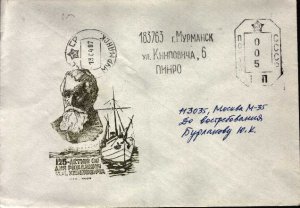 183763 г. Мурманск
ул. Книповича, 6
ПИНРО
СССР
005
П
МУРМАНСК
113035, Москва М-35
До востребования
Бурлакову Ю.К.
125-ЛЕТИЕ СО
ДНЯ РОЖДЕНИЯ
Н.М. КНИПОВИЧА